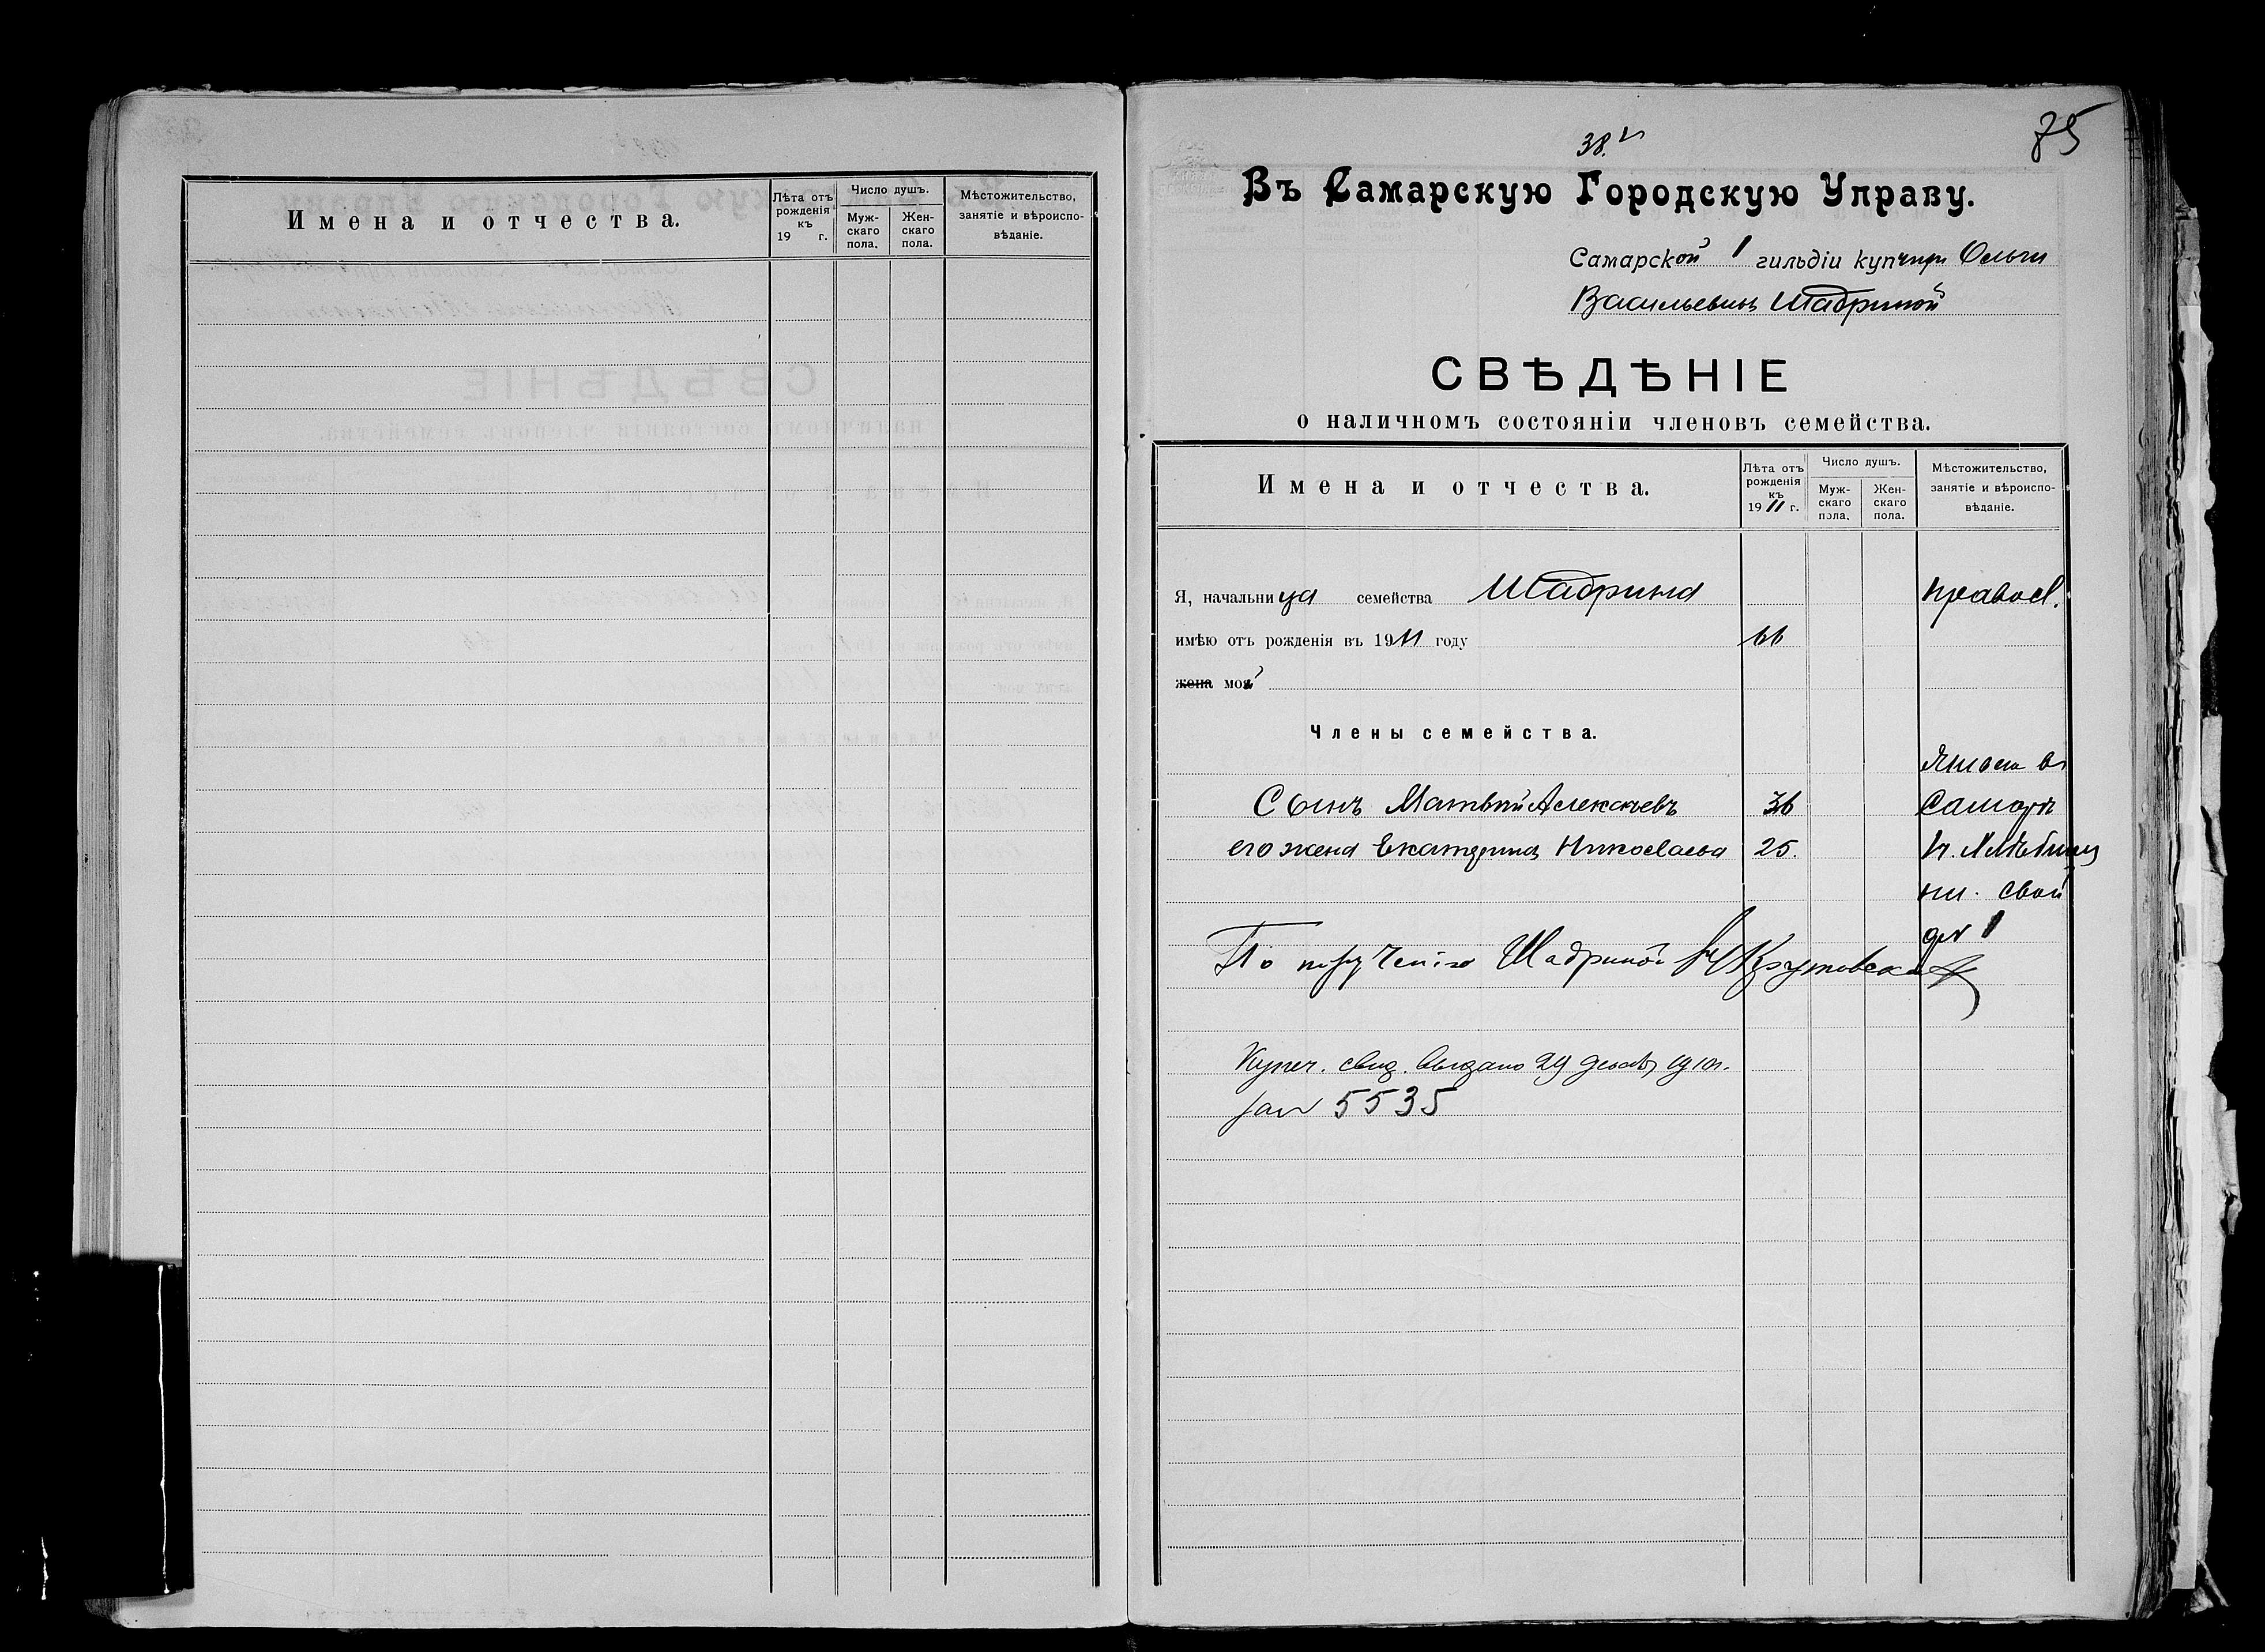 Имена и отчества.
Лѣта отъ рожденія къ 19 г.
Число душъ.
Муж- скаго пола.
Жен- скаго пола.
Мѣстожительство, занятіе и вѣроиспо- вѣданіе.
75
38.
Въ Самарскую Городскую Управу.
Самарской 1 гильдіи купчихи Ольги
Васильевны Шадриной
СВѢДѢНІЕ
о наличномъ состояніи членовъ семейства.
Имена и отчества.
Лѣта отъ рожденія къ 1911 г.
Число душъ.
Муж- скаго пола.
Жен- скаго пола.
Мѣстожительство, занятіе и вѣроиспо- вѣданіе.
Я, начальница семейства Шадрина
правосл.
имѣю отъ рожденія въ 1911 году 66
жена мой
Члены семейства.
Сынъ Матвѣй Алексѣевъ 36
Самарѣ
его жена Екатерина Николаева 25.
свой
По порученію Шадриной
Купеч. свид. выдано 29 декаб 1910 г.
за № 5535